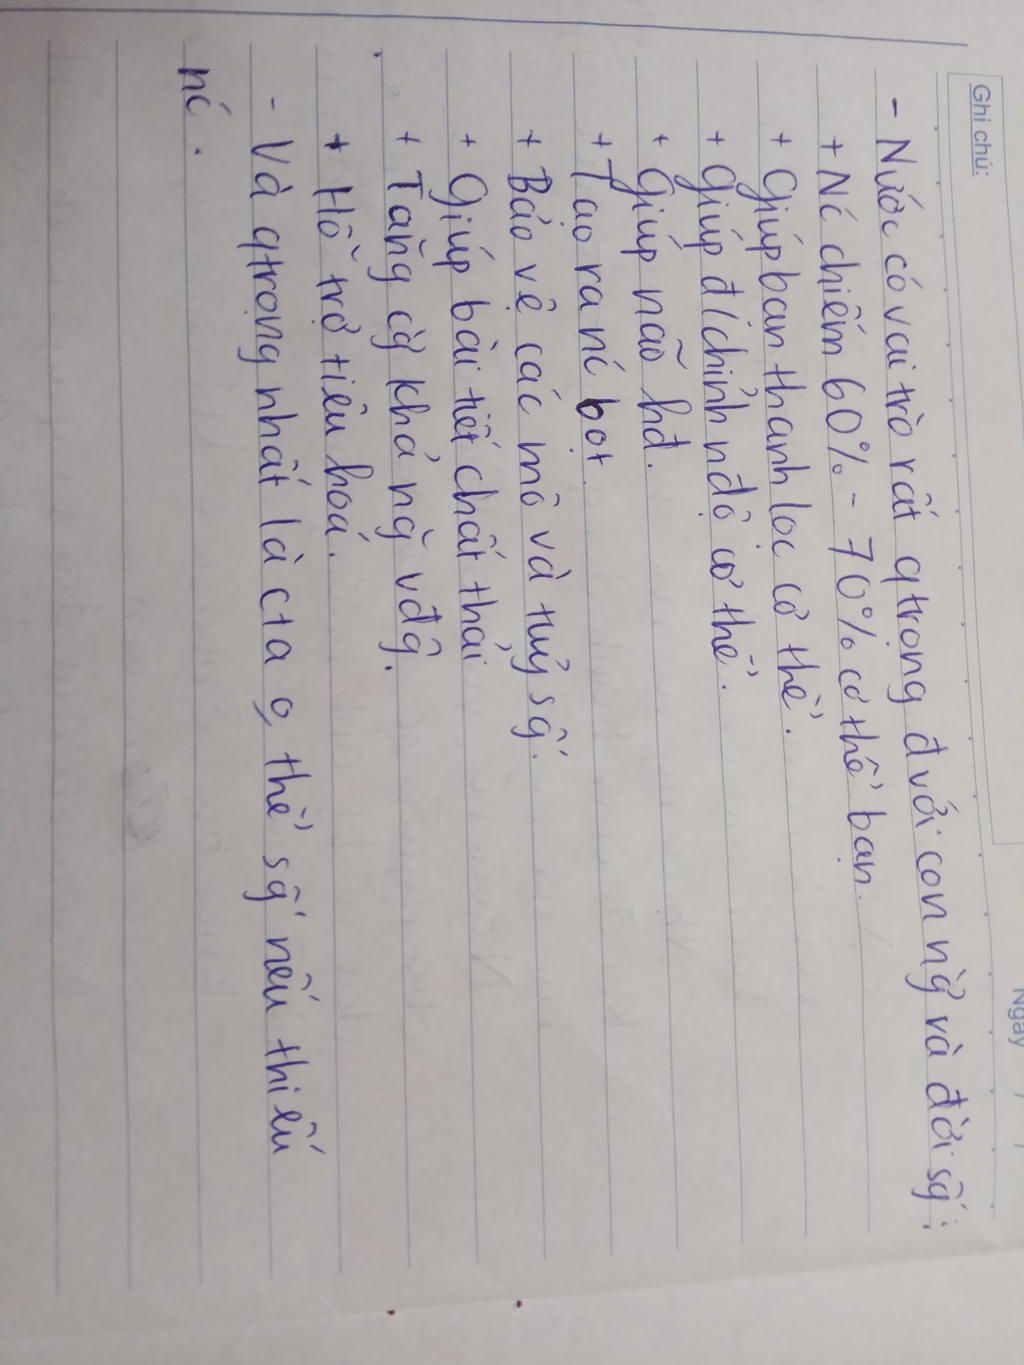 Ghi chú:
Ngày / /
- Nước có vai trò rất qtrọng đ với con ng̀ và đời sģ:
+ Nc chiếm 60% - 70% cơ thể bạn.
+ Giúp bạn thanh lọc cơ thể.
+ Giúp đ/chỉnh nđộ cơ thể.
+ Giúp não hđ.
+ Tạo ra nc bọt
+ Bảo vệ các mô và tuỷ sống.
+ Giúp bài tiết chất thải
+ Tăng cg̀ khả năng vđg.
+ Hỗ trợ tiêu hoá.
- Và qtrọng nhất là cta o thể sống nếu thiếu
nc.